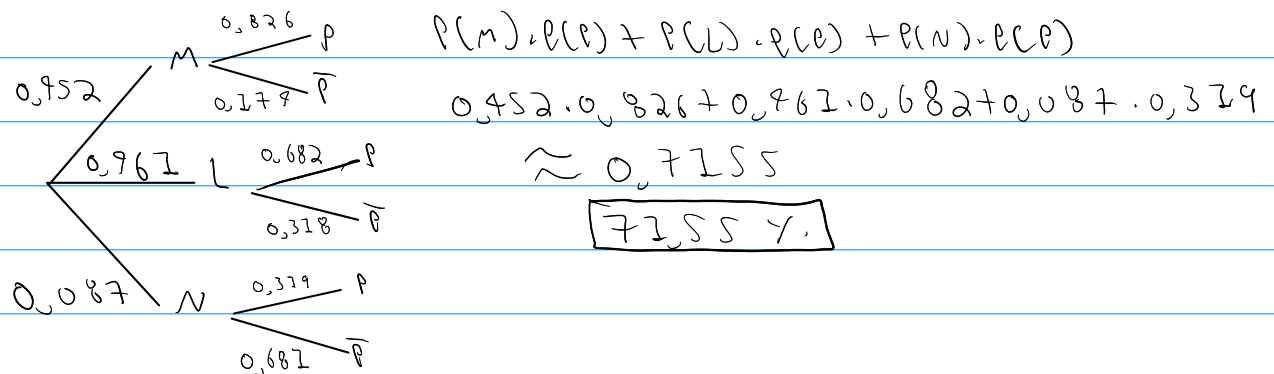 0,826 P
M
0,174 P̅
0,452
0,461 L
0,682 P
0,318 P̅
0,087 N
0,319 P
0,681 P̅
P(M).P(P) + P(L).P(P) + P(N).P(P)
0,452.0,826+0,461.0,682+0,087.0,319
≈ 0,7155
71,55 %.